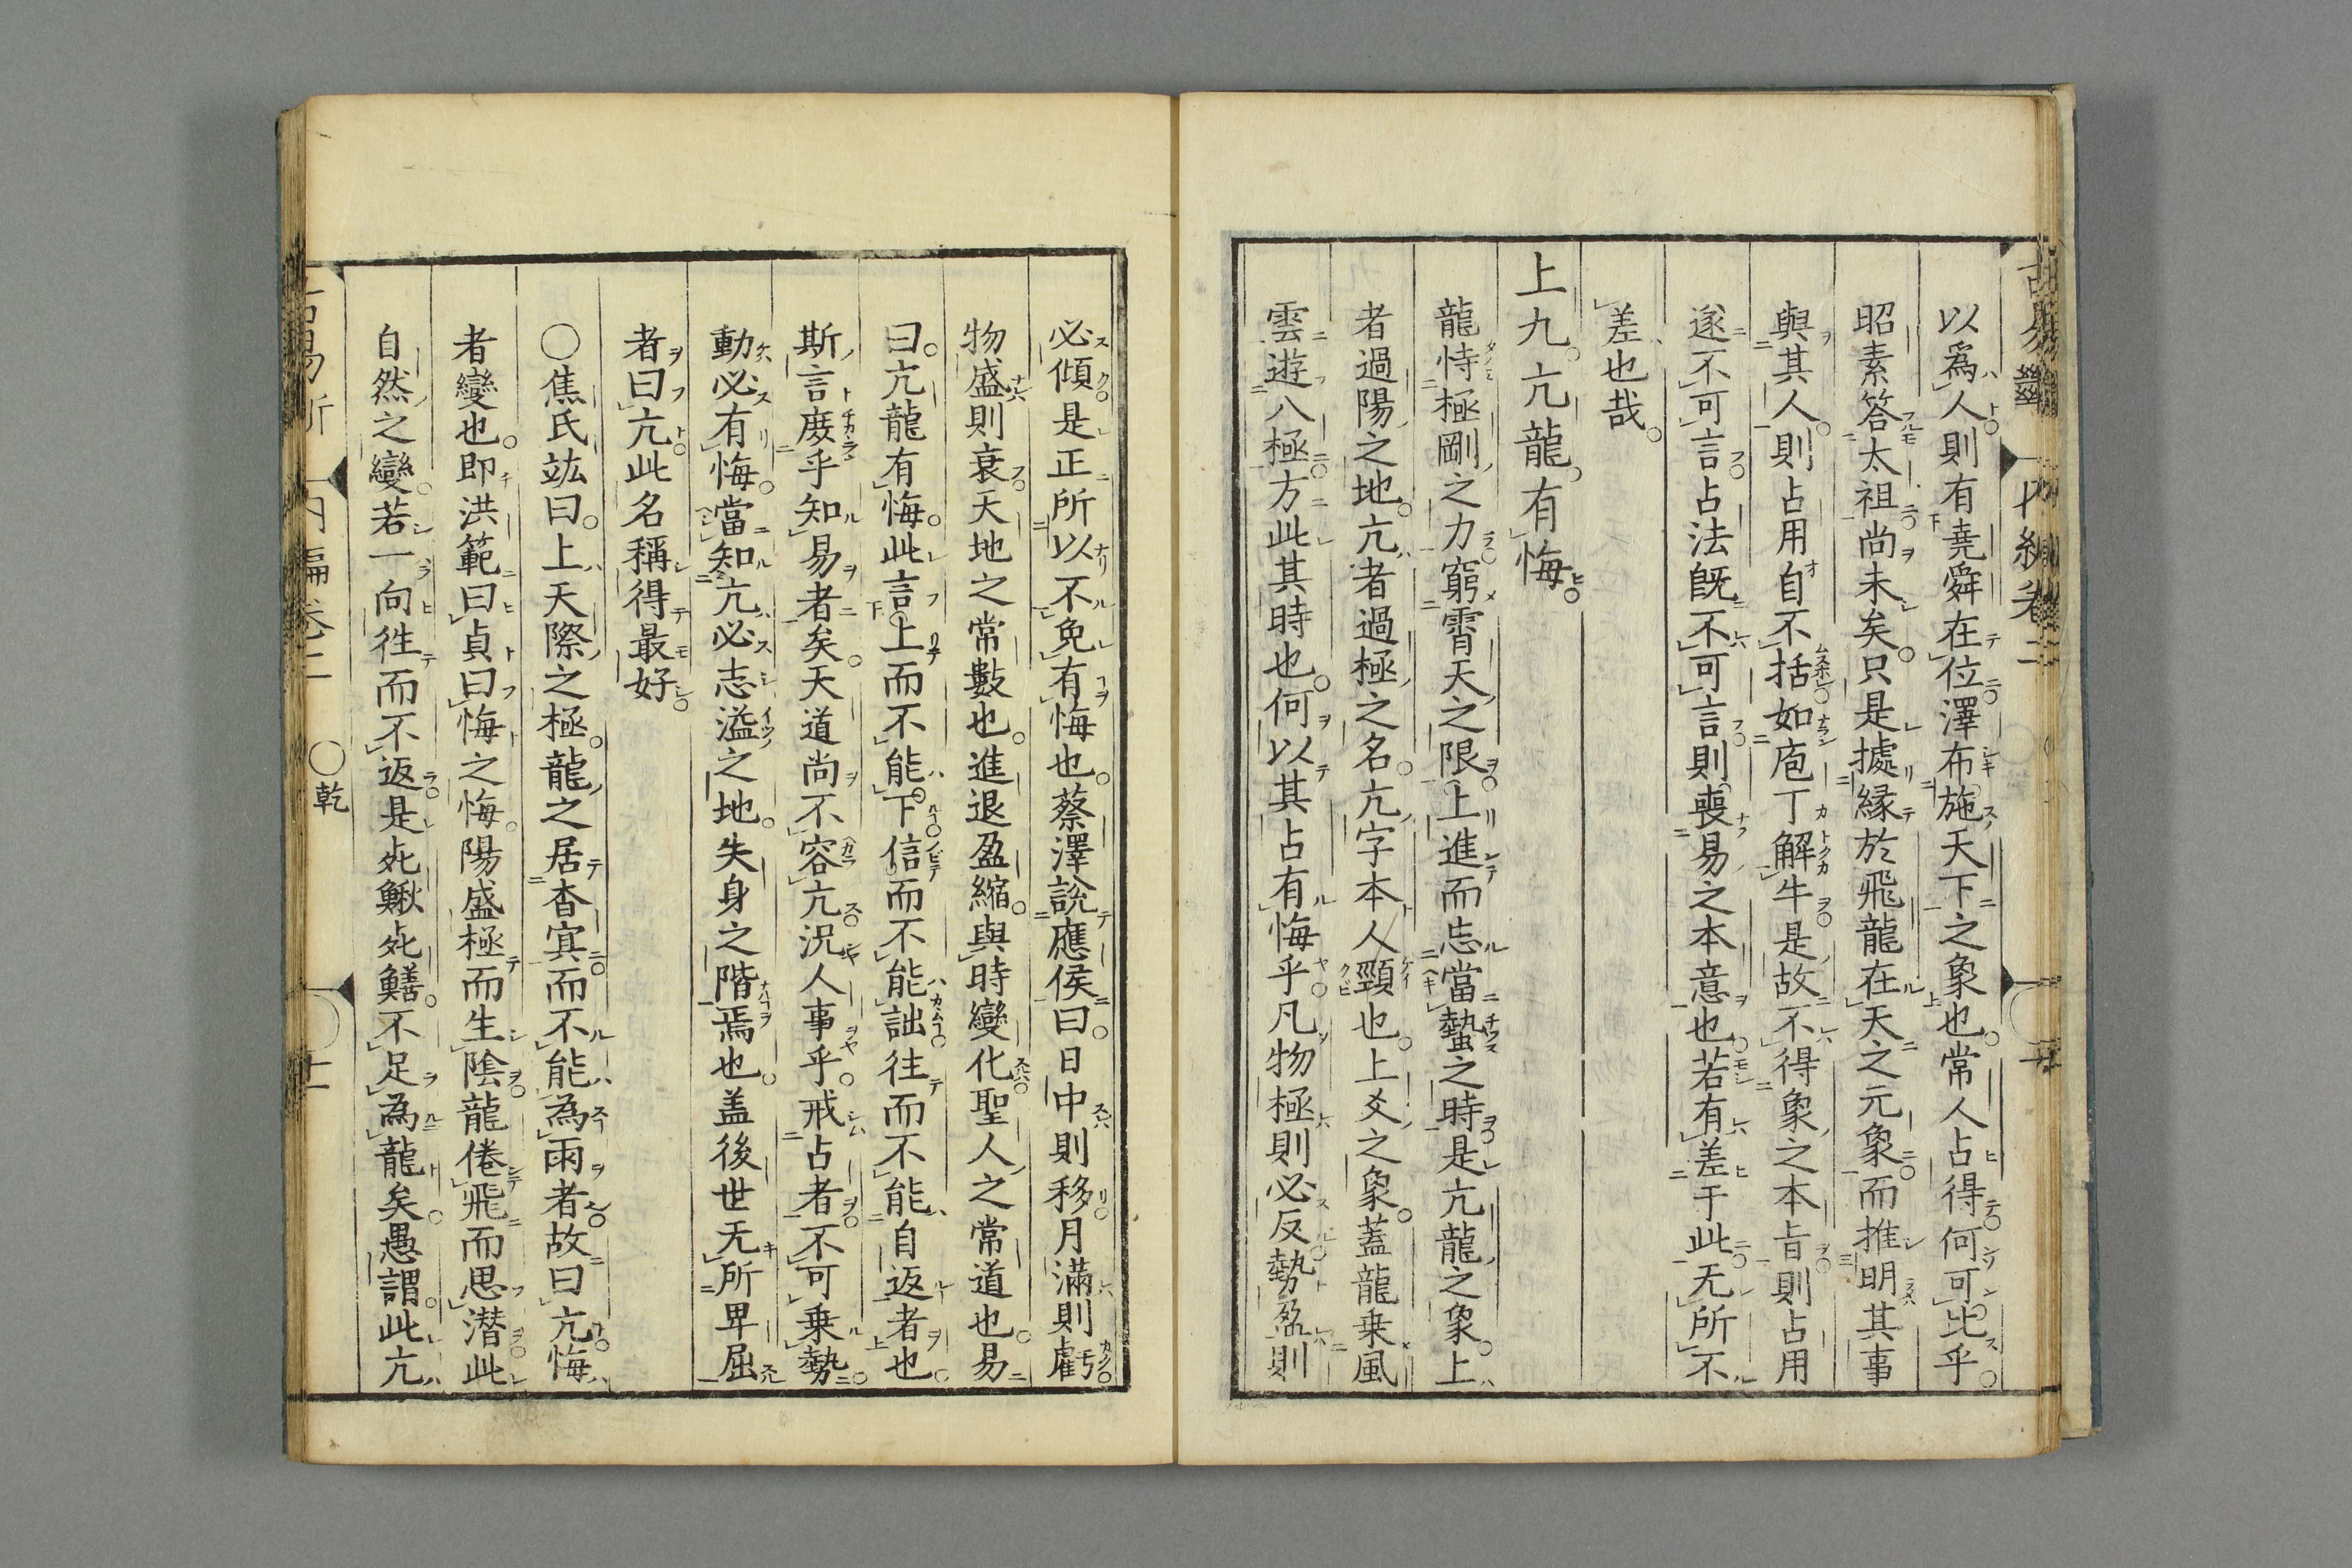 以爲人則有堯舜在位澤布施天下之象也常人占得何可比乎
昭素答太祖尚未矣只是據緣於飛龍在天之元象而推明其事
與其人則占用自不括如庖丁解牛是故不得象之本旨則占用
遂不可言占法既不可言則喪易之本意也若有差于此无所不
差也哉
上九亢龍有悔
龍恃極剛之力窮霄天之限上進而忘當蟄之時是亢龍之象上
者過陽之地亢者過極之名亢字本人頸也上爻之象蓋龍乗風
雲遊八極方此其時也何以其占有悔乎凡物極則必反勢盈則
必傾是正所以不免有悔也蔡澤說應侯曰日中則移月滿則虧
物盛則衰天地之常數也進退盈縮與時變化聖人之常道也易
曰亢龍有悔此言上而不能下信而不能詘往而不能自返者也
斯言庶乎知易者矣天道尚不容亢況人事乎戒占者不可乗勢
動必有悔當知亢必志溢之地失身之階焉也盖後世无所卑屈
者曰亢此名稱得最好
〇焦氏竑曰上天際之極龍之居杳冥而不能為雨者故曰亢悔
者變也即洪範曰貞曰悔之悔陽盛極而生陰龍倦飛而思潜此
自然之變若一向徃而不返是死鰍死鱔不足為龍矣愚謂此亢
内編卷二
〇乾